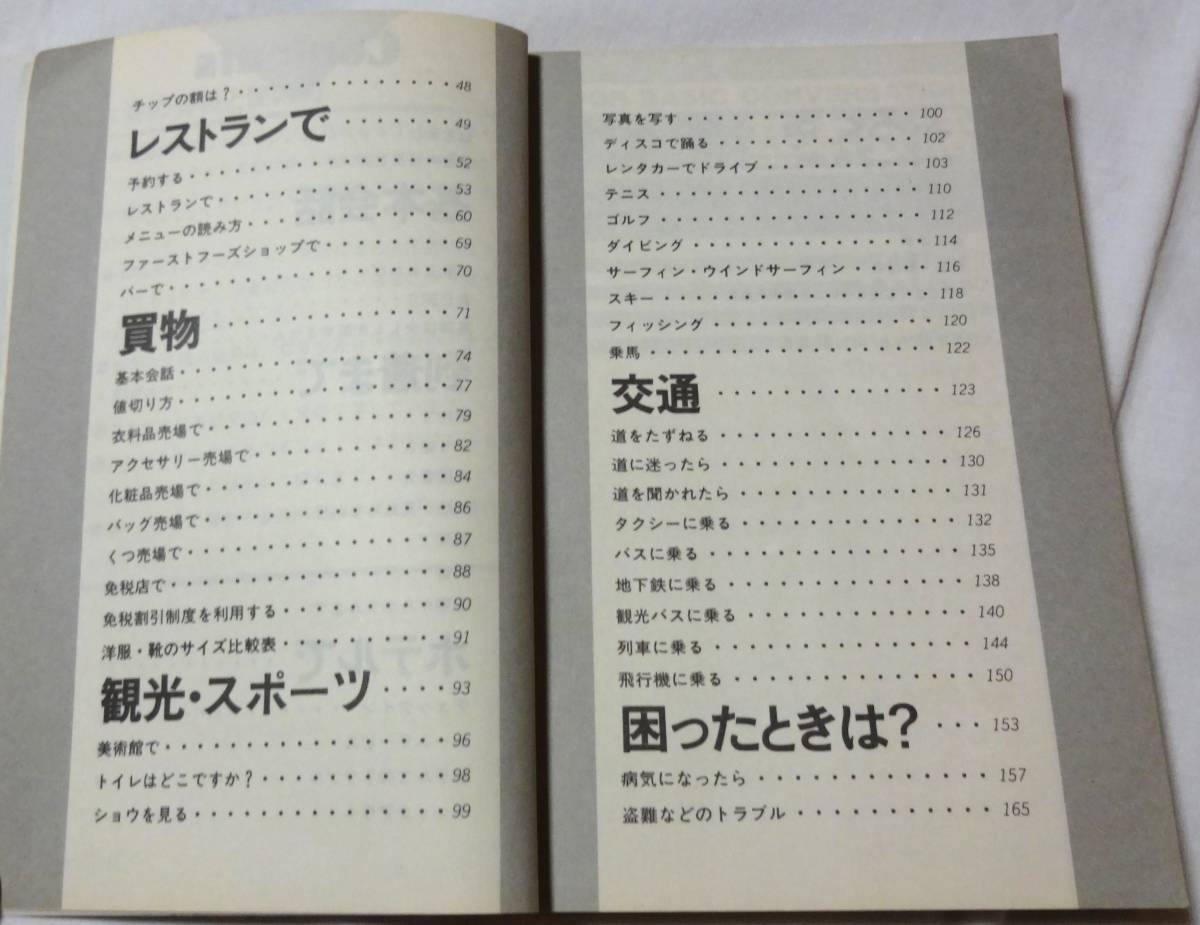 チップの額は？・・・・・・・・・・・・・・・48
レストランで・・・・・・・・49
予約する・・・・・・・・・・・・・・・・52
レストランで・・・・・・・・・・・・・・53
メニューの読み方・・・・・・・・・・・・60
ファーストフーズショップで・・・・・・・69
バーで・・・・・・・・・・・・・・・・・70
買物・・・・・・・・・・・・・・71
基本会話・・・・・・・・・・・・・・・・74
値切り方・・・・・・・・・・・・・・・・77
衣料品売場で・・・・・・・・・・・・・・79
アクセサリー売場で・・・・・・・・・・・82
化粧品売場で・・・・・・・・・・・・・・84
バッグ売場で・・・・・・・・・・・・・・86
くつ売場で・・・・・・・・・・・・・・・87
免税店で・・・・・・・・・・・・・・・・88
免税割引制度を利用する・・・・・・・・・90
洋服・靴のサイズ比較表・・・・・・・・・91
観光・スポーツ・・・・93
美術館で・・・・・・・・・・・・・・・・96
トイレはどこですか？・・・・・・・・・・98
ショウを見る・・・・・・・・・・・・・・99
写真を写す・・・・・・・・・・・・・・100
ディスコで踊る・・・・・・・・・・・・102
レンタカーでドライブ・・・・・・・・・103
テニス・・・・・・・・・・・・・・・・110
ゴルフ・・・・・・・・・・・・・・・・112
ダイビング・・・・・・・・・・・・・・114
サーフィン・ウインドサーフィン・・・・・116
スキー・・・・・・・・・・・・・・・・118
フィッシング・・・・・・・・・・・・・120
乗馬・・・・・・・・・・・・・・・・・122
交通・・・・・・・・・・・・・123
道をたずねる・・・・・・・・・・・・・126
道に迷ったら・・・・・・・・・・・・・130
道を聞かれたら・・・・・・・・・・・・131
タクシーに乗る・・・・・・・・・・・・132
バスに乗る・・・・・・・・・・・・・・135
地下鉄に乗る・・・・・・・・・・・・・138
観光バスに乗る・・・・・・・・・・・・140
列車に乗る・・・・・・・・・・・・・・144
飛行機に乗る・・・・・・・・・・・・・150
困ったときは？・・・153
病気になったら・・・・・・・・・・・・157
盗難などのトラブル・・・・・・・・・・・165